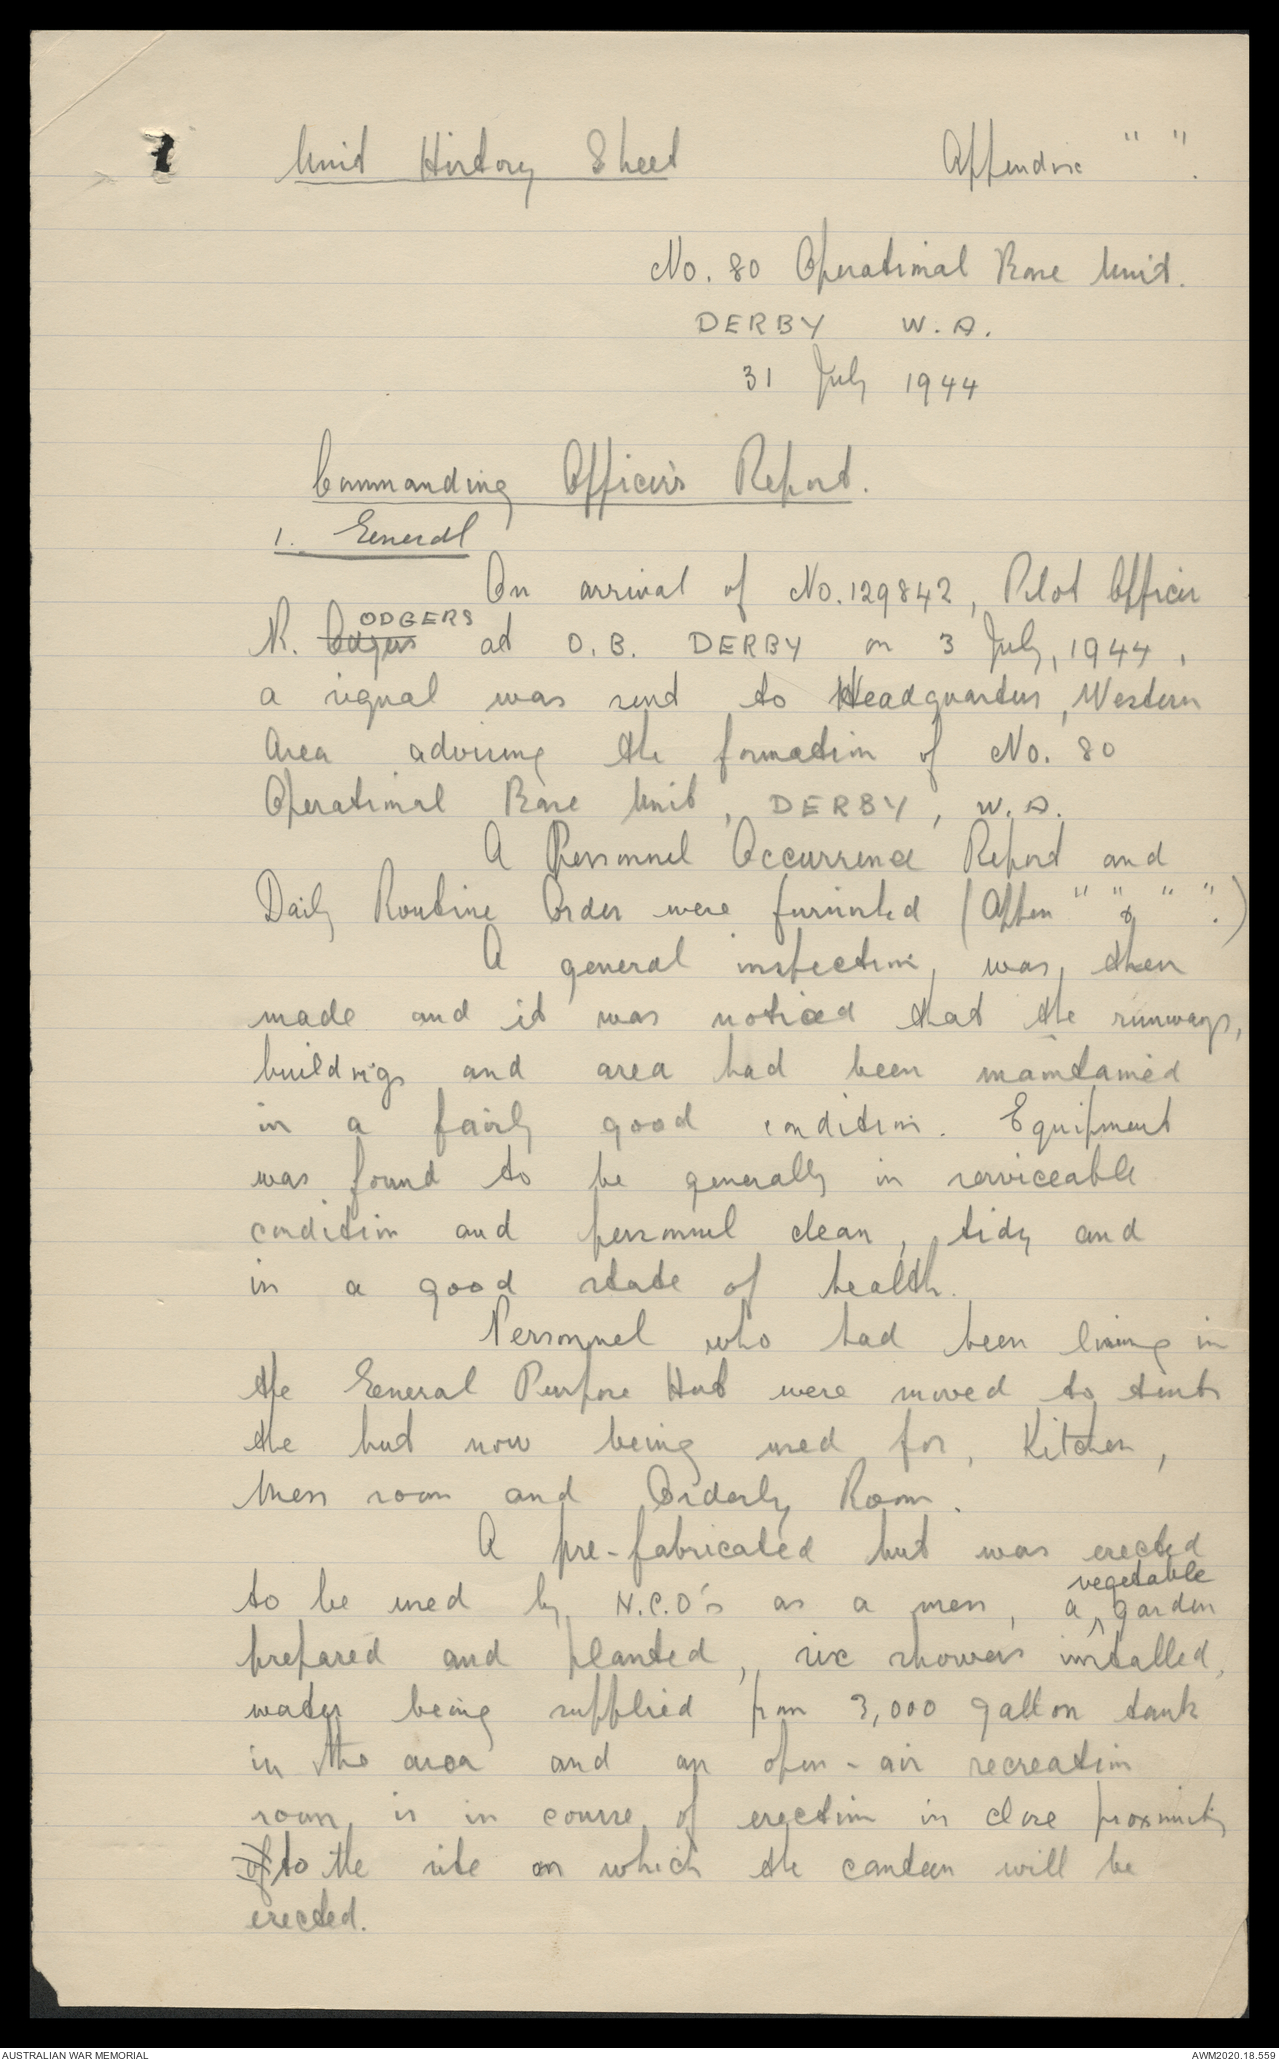 Unit History Sheet Appendix " ".
No. 80 Operational Base Unit.
DERBY W.A.
31 July 1944
Commanding Officer's Report.
1. General
On arrival of No. 129842, Pilot Officer
R. Odgers ODGERS at O.B. DERBY on 3 July, 1944,
a signal was sent to Headquarters, Western
Area advising the formation of No. 80
Operational Base Unit, DERBY, W.A.
A Personnel Occurrence Report and
Daily Routine Order were furnished (Appen " " & " ".)
A general inspection, was, then
made and it was noticed that the runways,
buildings and area had been maintained
in a fairly good condition. Equipment
was found to be generally in serviceable
condition and personnel clean, tidy and
in a good state of health.
Personnel who had been living in
the General Purpose Hut were moved to tents
the hut now being used for, Kitchen,
Mess room and Orderly Room.
A pre-fabricated hut was erected
to be used by N.C.O's as a mess, a vegetable garden
prepared and planted, six showers installed,
water being supplied from 3,000 gallon tank
in the area and an open-air recreation
room is in course of erection in close proximity
of to the site on which the canteen will be
erected.
AUSTRALIAN WAR MEMORIAL AWM2020.18.559